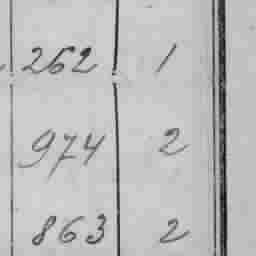 262 1
974 2
863 2